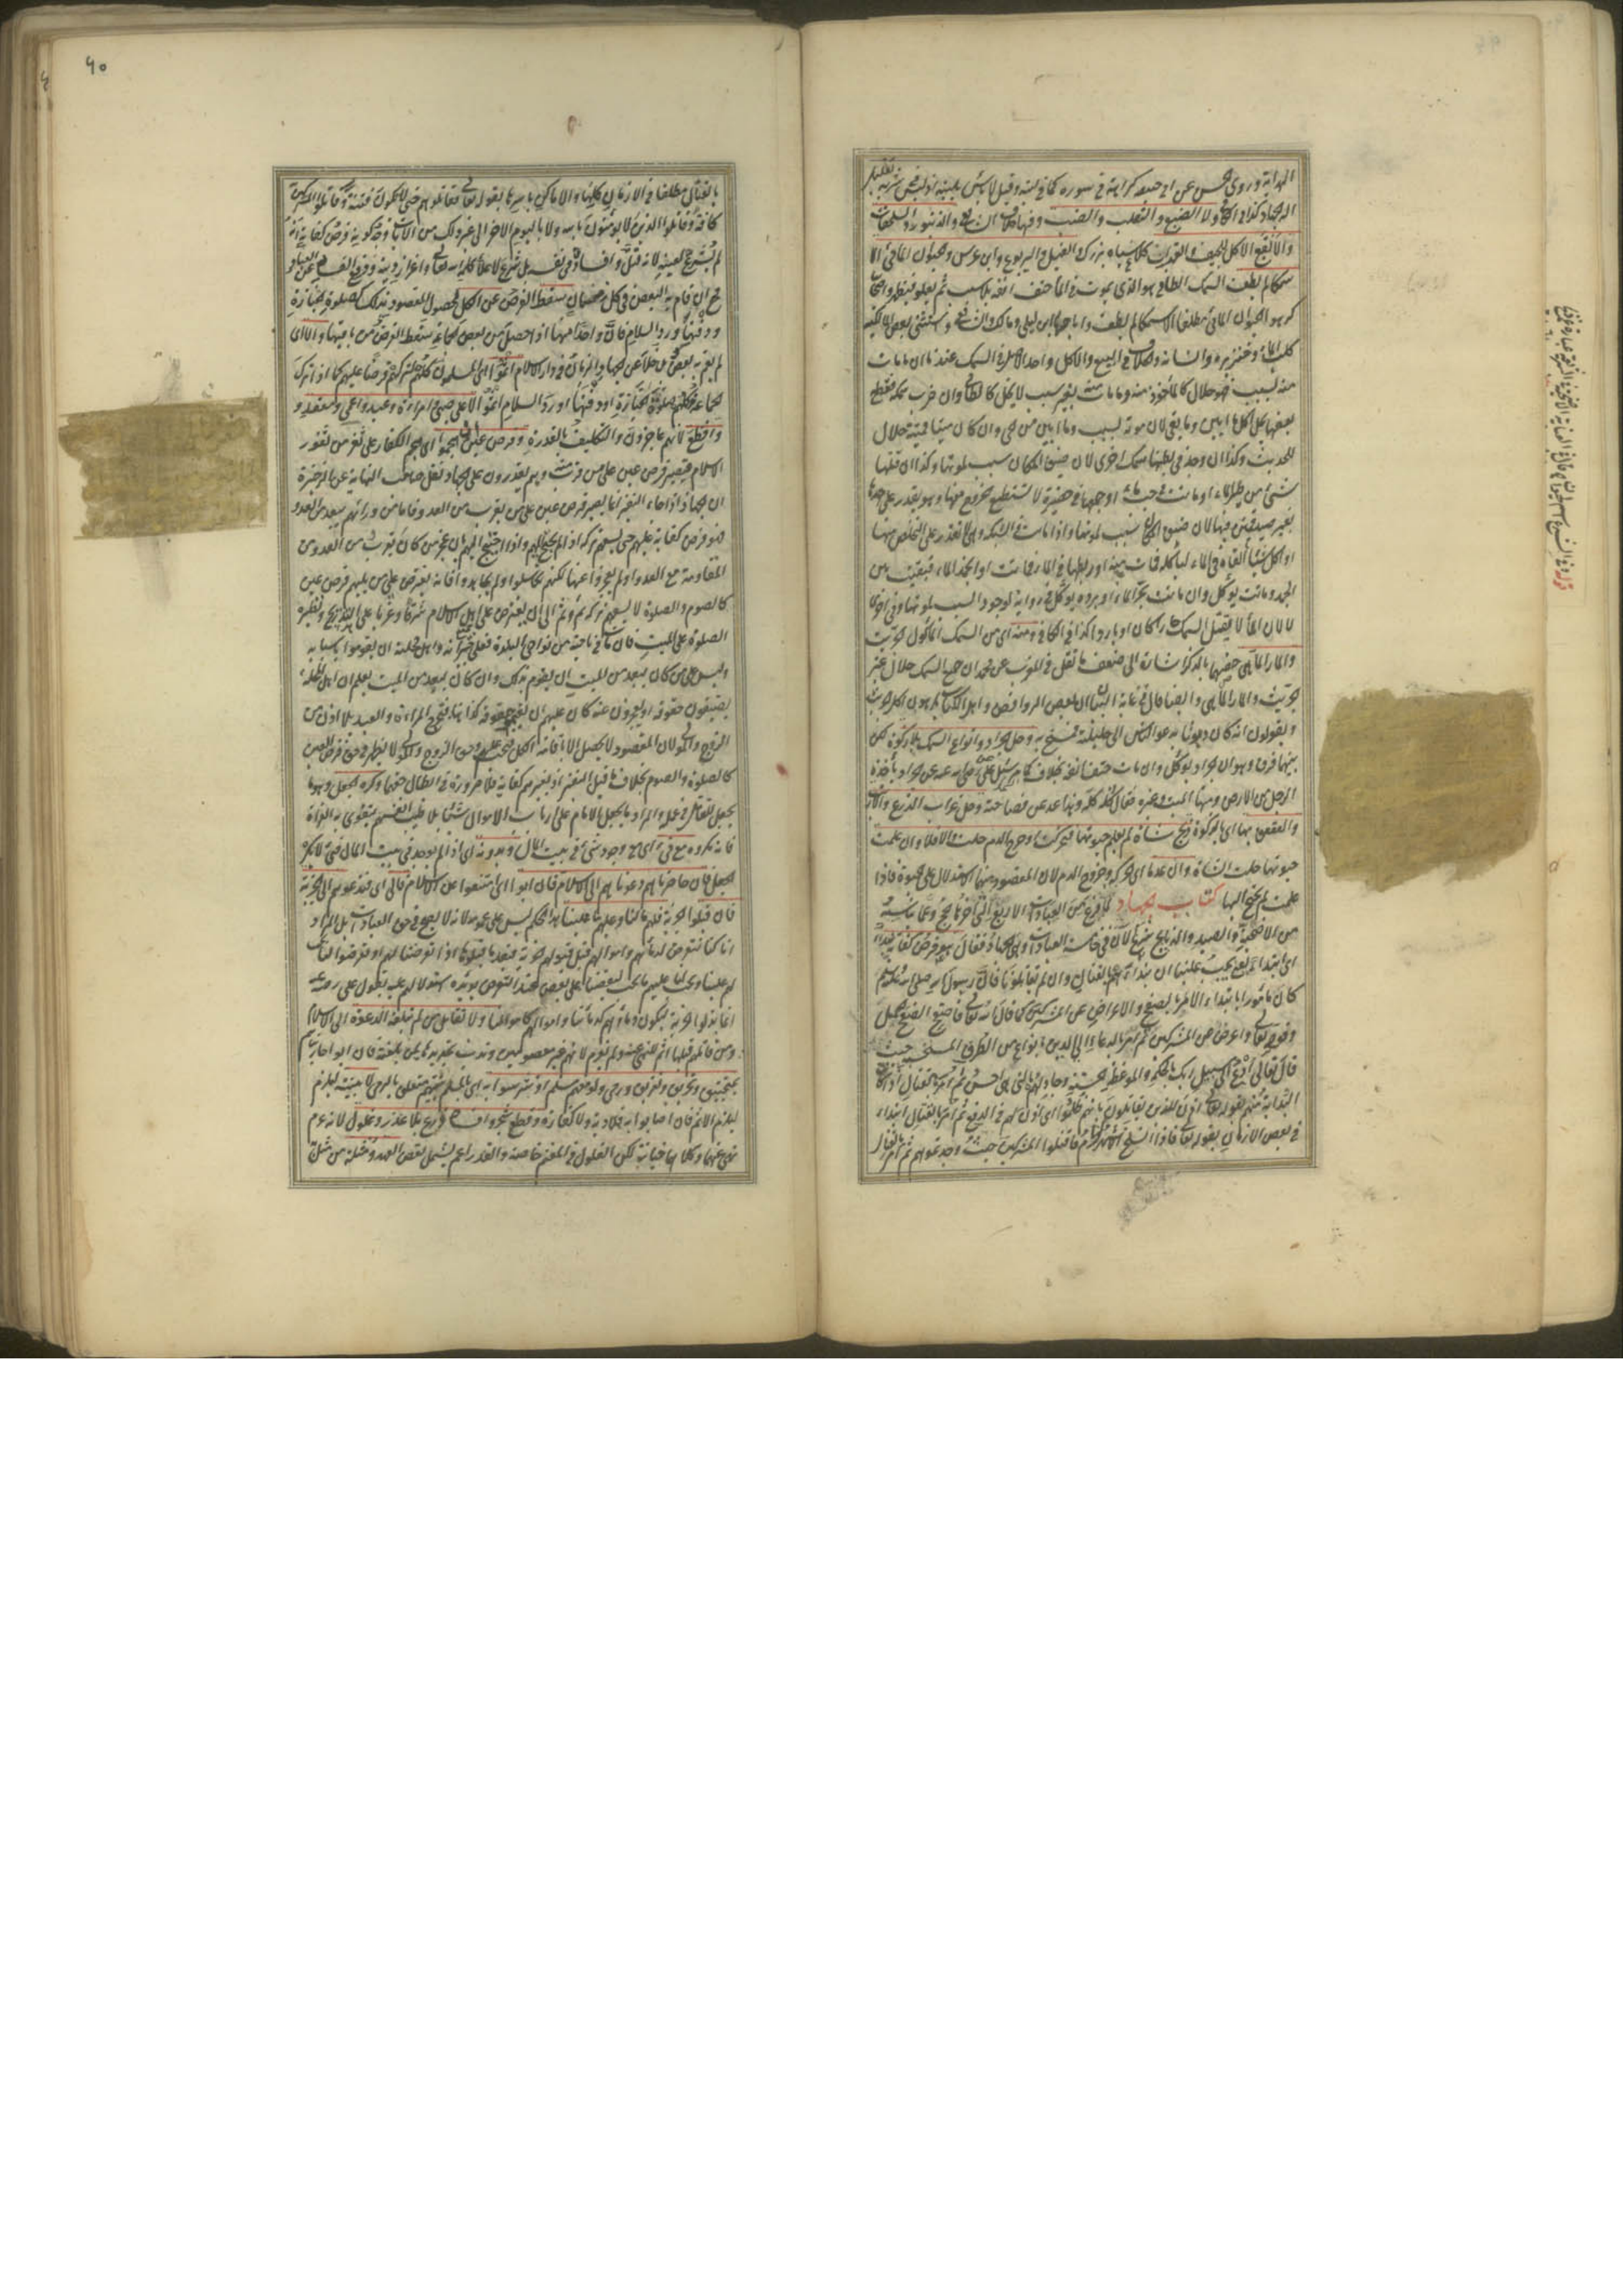 الهداية وروى الحسن عن ابي حنيفة كراهة في سوره كما في لبنه وقيل لا بأس بلبنه اذ ليس في شربه تقليل
آلة الجهاد كذا في الكافي ولا الضبع والثعلب والضب وفيها خلاف الشافعي والزنبور والسلحفاة
والابقع الاكل للجيف والغداف كلاغ سياه بزرك والفيل واليربوع وابن عرس والحيوان المائي الا
سمكا لم يطف السمك الطافي هو الذي يموت في الماء حتف انفه بلا سبب ثم يعلو فيظهر
كره الحيوان المائي مطلقا الا سمكا لم يطف واباحها ابن ابي ليلى ومالك والشافعي واستثنى بعض المالكية
كلب الماء وخنزيره وانسانه والخلاف في البيع والاكل واحد الاصل في السمك عندنا ان ما مات
منه بسبب فهو حلال كالمأخوذ منه وما مات منه بغير سبب لا يحل كالطافي وان ضرب سمكة فقطع
بعضها يحل اكل ما ابين وما بقي لان موته بسبب وما ابين من الحي وان كان ميتا فميتته حلال
للحديث وكذا ان وجد في بطنها سمكة اخرى لان ضيق المكان سبب لموتها وكذا ان قتلها
شيء من طير الماء او ماتت في جب ماء او جمعها في حظيرة لا تستطيع الخروج منها وهو يقدر على اخذها
بغير صيد فمتن فيها لان ضيق المكان سبب لموتها واذا ماتت في الشبكة وهي لا تقدر على التخلص منها
او اكل شيئا القاه في الماء ليأكله فمات منه او ربطها في الماء فماتت او انجمد الماء فبقيت بين
الجمد وماتت يؤكل وان ماتت بحر الماء او برده يؤكل في رواية لوجود السبب لموتها وفي اخرى
لا لان الماء لا يقتل السمك حارا كان او باردا كذا في الكافي ومنه اي من السمك المأكول الجريث
والمارماهي خصهما بالذكر اشارة الى ضعف ما نقل في المغرب عن محمد ان جميع السمك حلال غير
الجريث والمارماهي وايضا قال في غاية البيان ان بعض الروافض واهل الكتاب يكرهون اكل الجريث
ويقولون انه كان ديوثا يدعو الناس الى حليلته فمسخ به وحل الجراد وانواع السمك بلا ذكوة لكن
بينهما فرقا وهو ان الجراد يؤكل وان مات حتف انفه بخلاف السمك سئل علي رضي الله عنه عن الجراد يأخذه
الرجل من الارض ومنها الميت وغيره فقال كله كله وهذا عد من فصاحته وحل غراب الزرع والارنب
والعقعق بها اي بالذكوة ذبح شاة لم يعلم حيوتها فتحركت او خرج الدم حلت والا فلا وان علمت
حيوتها حلت الشاة وان عدما اي الحركة وخروج الدم لان المقصود منهما الاستدلال على الحيوة فاذا
علمت لم يحتج اليها كتاب الجهاد لما فرغ من العبادات الاربع التي آخرها الحج وعما يناسبه
من الاضحية والصيد والذبايح شرع الآن في خامسة العبادات وهي الجهاد فقال هو فرض كفاية بدءا
اي ابتداء يعني يجب علينا ان نبدأهم بالقتال وان لم يقاتلونا فان رسول الله صلى الله عليه وسلم
كان مأمورا بابتداء الامر بالصفح والاعراض عن المشركين كما قال الله تعالى فاصفح الصفح الجميل
وقوله تعالى واعرض عن المشركين ثم امر بالدعاء الى الدين بانواع من الطرق المستحسنة حيث
قال تعالى ادع الى سبيل ربك بالحكمة والموعظة الحسنة وجادلهم بالتي هي احسن ثم امر بالقتال اذا كان
البداية منهم لقوله تعالى اذن للذين يقاتلون بانهم ظلموا اي اذن لهم في الدفع ثم امر بالقتال ابتداء
في بعض الازمان بقوله تعالى فاذا انسلخ الاشهر الحرم فاقتلوا المشركين حيث وجدتموهم ثم امر بالقتال
٦٠
بالقتال مطلقا في الازمان كلها والاماكن باسرها بقوله تعالى وقاتلوهم حتى لا تكون فتنة وقاتلوا المشركين
كافة وقاتلوا الذين لا يؤمنون بالله ولا باليوم الآخر الى غير ذلك من الآيات وجه كونه فرض كفاية انه
لم يشرع لعينه لانه قتل وافساد في نفسه بل شرع لاعلاء كلمة الله تعالى واعزاز دينه ودفع الفساد عن العباد
فحينئذ ان قام به البعض في كل زمان سقط الفرض عن الكل لحصول المقصود بذلك كصلوة الجنازة
ودفنها ورد السلام فان واحدا منها اذا حصل من بعض الجماعة سقط الفرض عن باقيها والا اي
لم يقم به بعض بل خلا عن الجهاد الزمان في دار الاسلام اثموا اي المسلمون كلهم لتركهم فرضا عليهم كما اذا ترك
الجماعة كلهم صلوة الجنازة او دفنها او رد السلام اثموا الا على صبي وامرأة وعبد واعمى ومقعد و
واقطع لانهم عاجزون والتكليف بالقدرة وفرض عين ان هجموا اي هجم الكفار على ثغر من ثغور
الاسلام فيصير فرض عين على من قرب وهم يقدرون على الجهاد نقل صاحب النهاية عن الذخيرة
ان الجهاد اذا جاء النفير انما يصير فرض عين على من يقرب من العدو فاما من ورائهم ببعد من العدو
فهو فرض كفاية عليهم حتى يسعهم تركه اذا لم يحتج اليهم واذا احتيج اليهم بان عجز من كان بقرب من العدو عن
المقاومة مع العدو او لم يعجزوا عنها لكنهم تكاسلوا ولم يجاهدوا فانه يفترض على من يليهم فرض عين
كالصوم والصلوة لا يسعهم تركه ثم وثم الى ان يفترض على اهل الاسلام شرقا وغربا على التدريج ونظيره
الصلوة على الميت فان مات في ناحية من نواحي البلدة فعلى جيرانه واهل محلته ان يقوموا باسبابه
وليس على من كان ببعد من الميت ان يقوم بذلك وان كان ببعد من الميت يعلم ان اهل المحلة
يضيعون حقوقه او يعجزون عنه كان عليهم ان يقوموا بحقوقه كذا هنا فتخرج المرأة والعبد بلا اذن من
الزوج والمولى لان المقصود لا يحصل الا باقامة الكل فيجب عليهم وحق الزوج والمولى لا يظهر في حق فرض العين
كالصلوة والصوم بخلاف ما قبل النفير اذ بغيرهم كفاية فلا ضرورة في ابطال حقهما وكره الجعل وهو ما
يجعل للعامل في عمله والمراد ما يجعل الامام على ارباب الاموال شيئا بلا طيب انفسهم يتقوى به الغزاة
فانه مكروه مع فيء اي مع وجود شيء في بيت المال وبدونه اي اذا لم يوجد في بيت المال فيء لا يكره
الجعل فان حاصرناهم دعوناهم الى الاسلام فان ابوا اي امتنعوا عن الاسلام فالى اي فندعوهم الى الجزية
فان قبلوا الجزية فلهم ما لنا وعليهم ما علينا هذا الحكم ليس على عمومه لانه لا يصح في حق العبادات بل المراد
انا كنا نتعرض لدمائهم واموالهم قبل قبولهم الجزية فبعد ما قبلوها اذا تعرضنا لهم او تعرضوا لنا يجب
لهم علينا ويجب لنا عليهم ما يجب لبعضنا على بعض عند التعرض يؤيده استدلالهم عليه بقول علي رضي الله عنه
انما بذلوا الجزية ليكون دماؤهم كدمائنا واموالهم كاموالنا ولا نقاتل من لم تبلغه الدعوة الى الاسلام
ومن قاتلهم قبلها اثم للنهي عنه ولم يغرم لانهم غير معصومين وندب تجديدها لمن بلغته فان ابوا حاربناهم
بمنجنيق وتحريق وتغريق ورمي ولو معهم مسلم او تترسوا به اي بالمسلم بنيتهم متعلق بالرمي لا بنيته ليلزم
ليلزم الاثم فان اصابوا به فلا دية ولا كفارة وقطع شجر وافساد زرع بلا غدر وغلول لانه عم
نهى عنهما وكلاهما خيانة لكن الغلول في المغنم خاصة والغدر اعم يشمل نقض العهد ومثلة من مثل